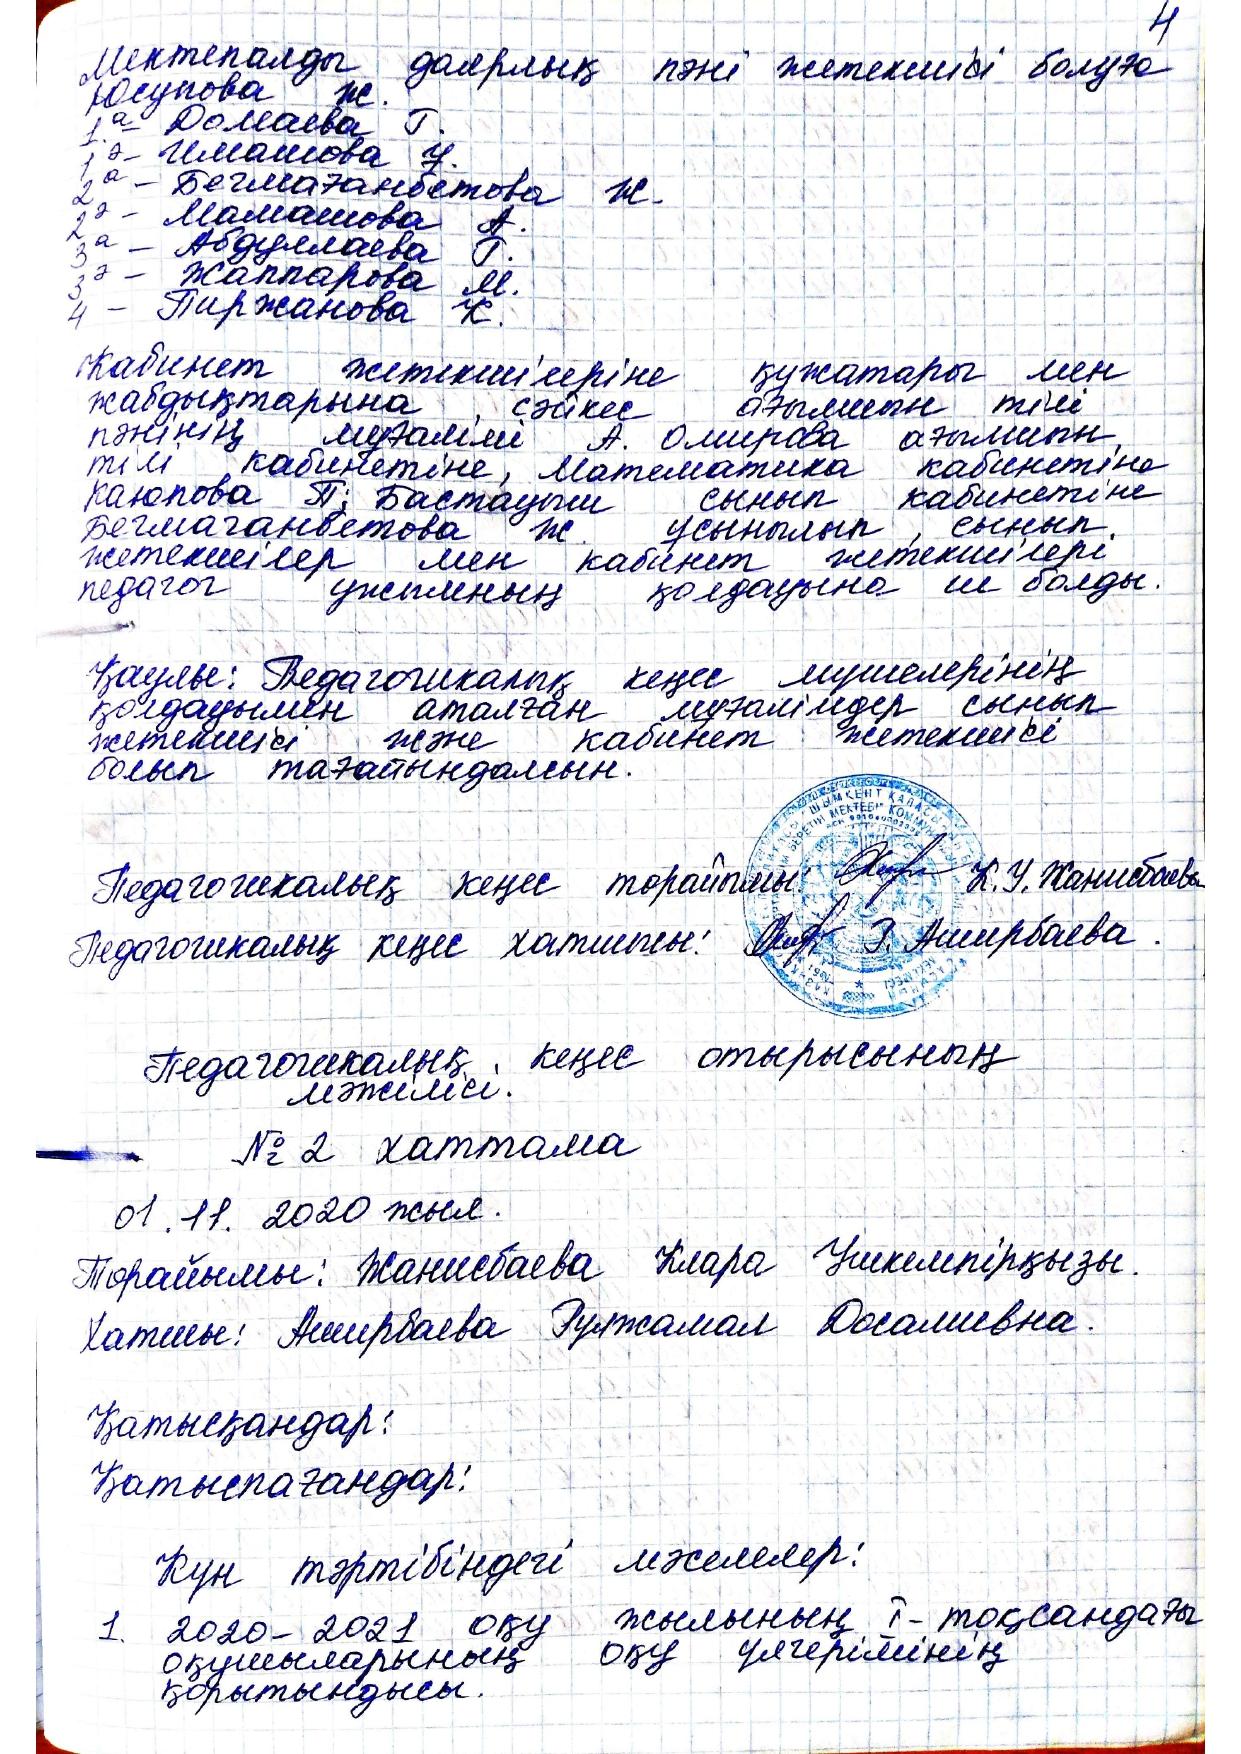 4
Мектепалды даярлық пәні жетекшісі болуға
Юсупова Ж.
1.а - Домаева Г.
1 ә - Имашова У.
2 а - Бегмағанбетова Ж.
2 ә - Мамашова А.
3 а - Абдуллаева Г.
3 ә - Жаппарова М.
4 - Пиржанова К.
Кабинет жетекшілеріне құжатары мен
жабдықтарына сәйкес ағылшын тілі
пәнінің мұғалімі А. Омирова ағылшын
тілі кабинетіне, Математика кабинетіне
Каюпова П; Бастауыш сынып кабинетіне
Бегмаганбетова Ж. ұсынылып, сынып
жетекшілер мен кабинет жетекшілері
педагог ұжымның қолдауына ие болды.
Қаулы: Педагогикалық кеңес мүшелерінің
қолдауымен аталған мұғалімдер сынып
жетекшісі және кабинет жетекшісі
болып тағайындалсын.
ШЫМКЕНТ ҚАЛАСЫ
БЕРЕТІН МЕКТЕБІ" КОММУН
Педагогикалық кеңес төрайымы: К.У. Жанисбаева
Педагогикалық кеңес хатшысы: Г. Аширбаева.
Педагогикалық кеңес отырысының
мәжілісі.
№ 2 хаттама
01.11. 2020 жыл.
Төрайымы: Жанисбаева Клара Үшкемпірқызы.
Хатшы: Аширбаева Гулжамал Досалиевна.
Қатысқандар:
Қатыспағандар:
Күн тәртібіндегі мәселелер:
1. 2020-2021 оқу жылының I-тоқсандағы
оқушыларының оқу үлгерімінің
қорытындысы.